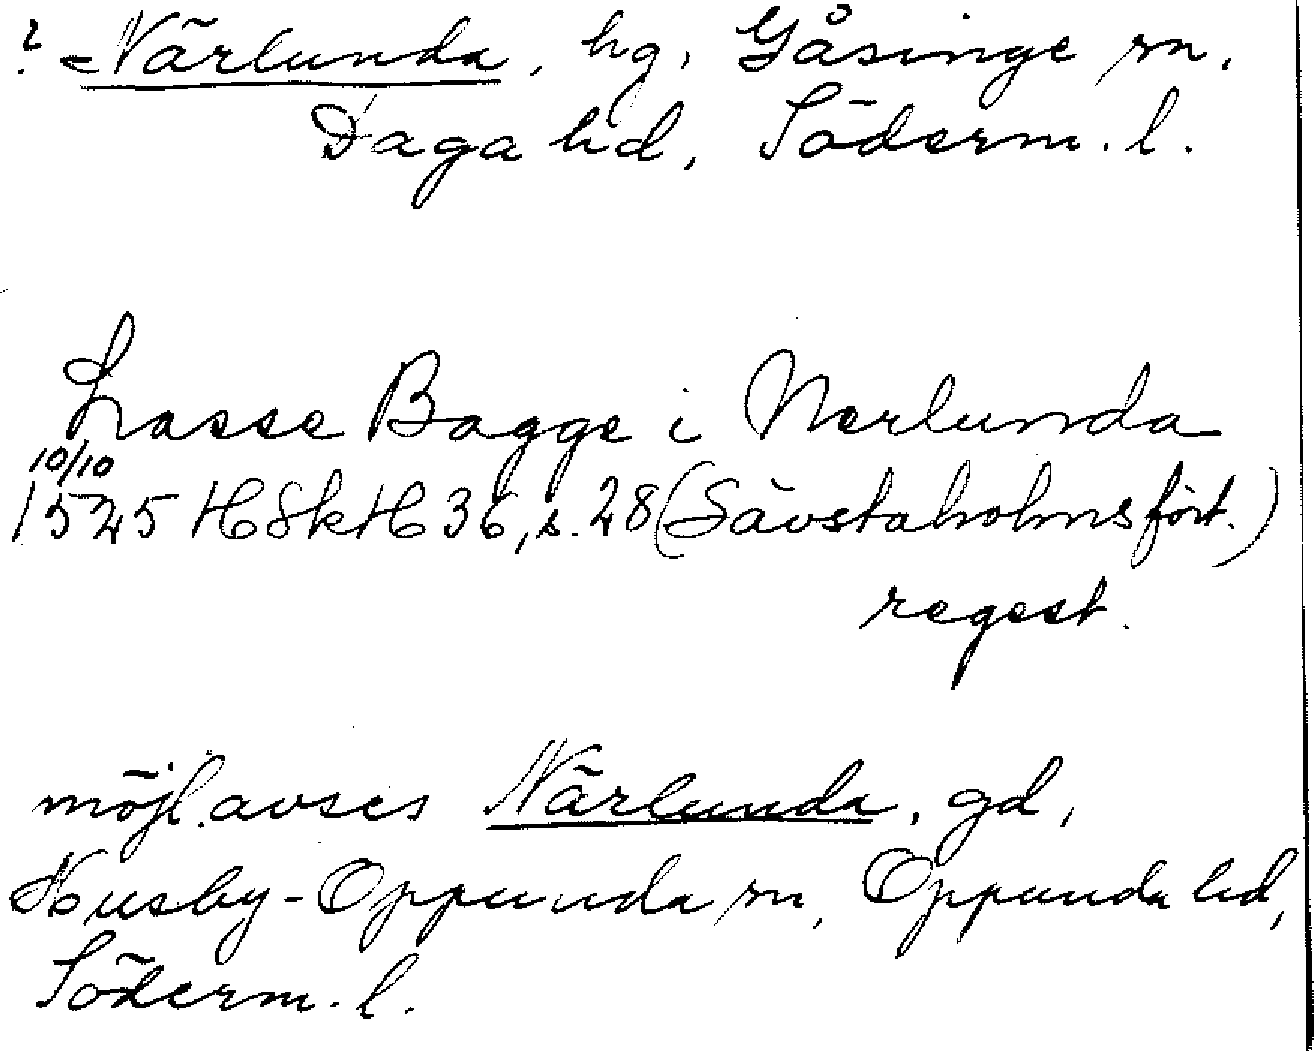 ? Närlunda, hg, Gåsinge sn,
Daga hd, Söderm. l.
Lasse Bagge i Nerlunda
10/10
1525 HSkH 36, s. 28 (Sävstaholmsfört.)
regest.
möjl. avses Närlunda, gd,
Husby-Oppunda sn, Oppunda hd,
Söderm. l.